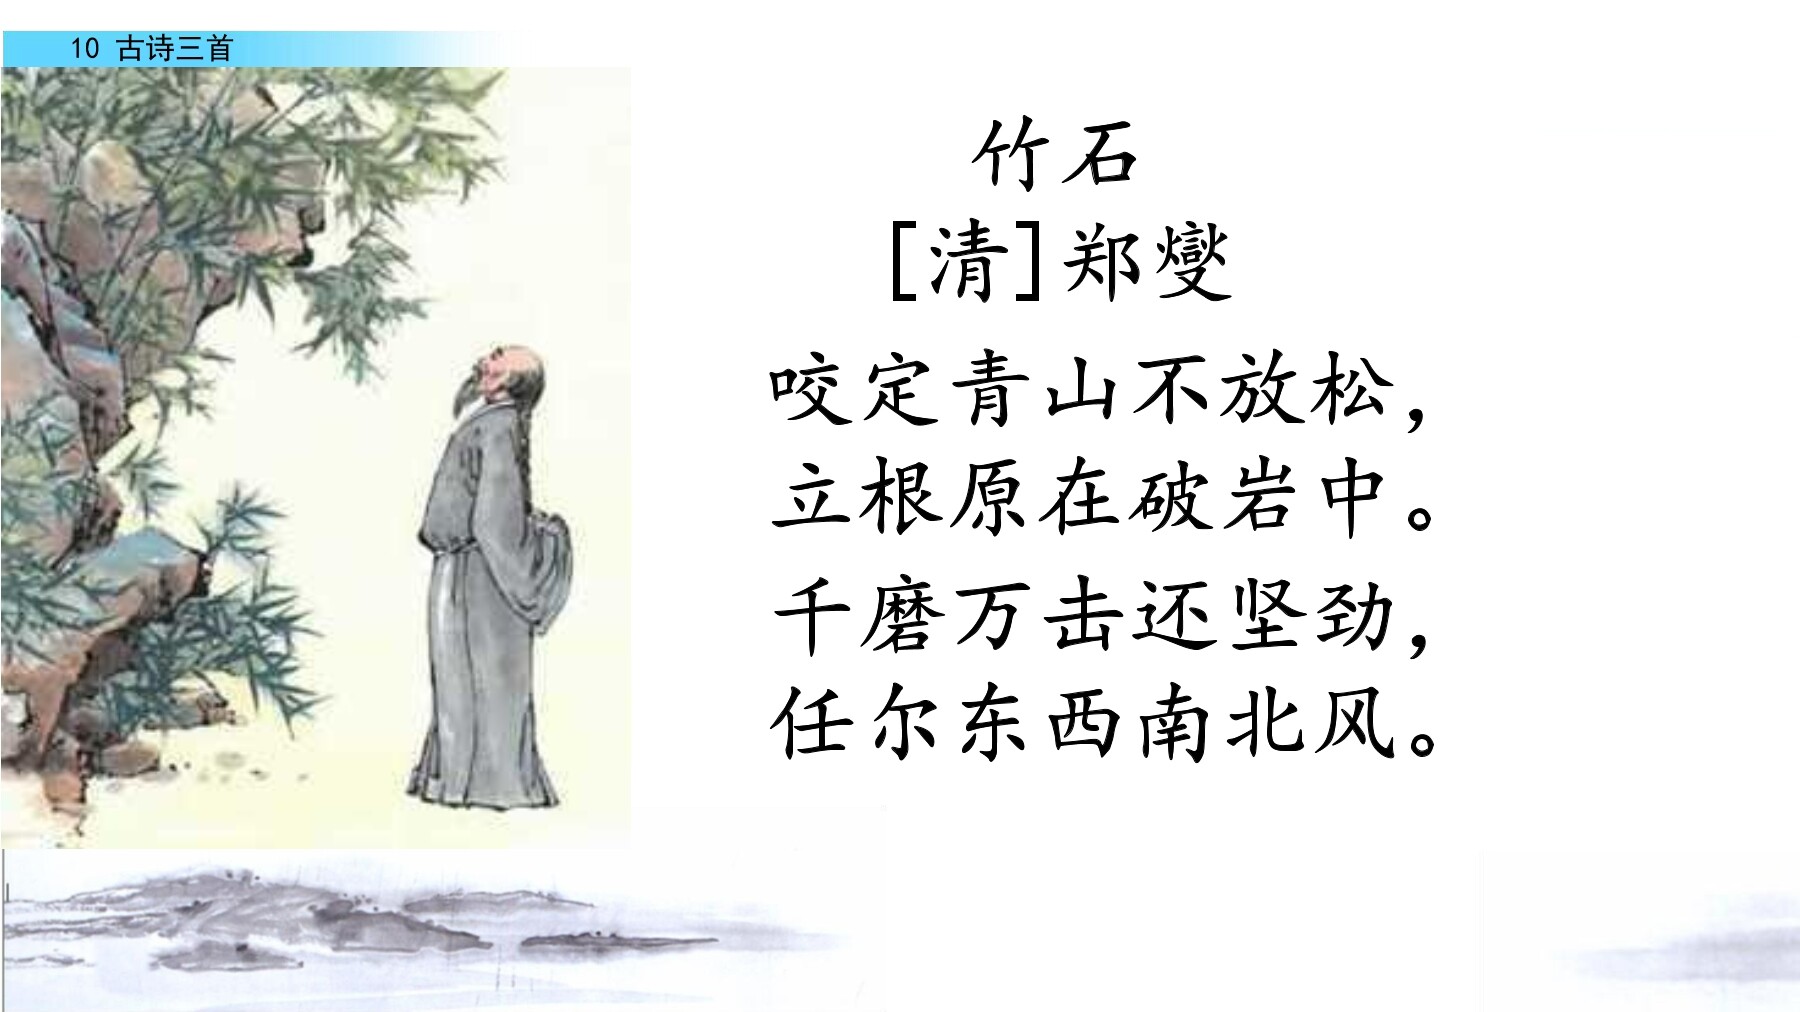 10 古诗三首
竹石
[清]郑燮
咬定青山不放松，
立根原在破岩中。
千磨万击还坚劲，
任尔东西南北风。